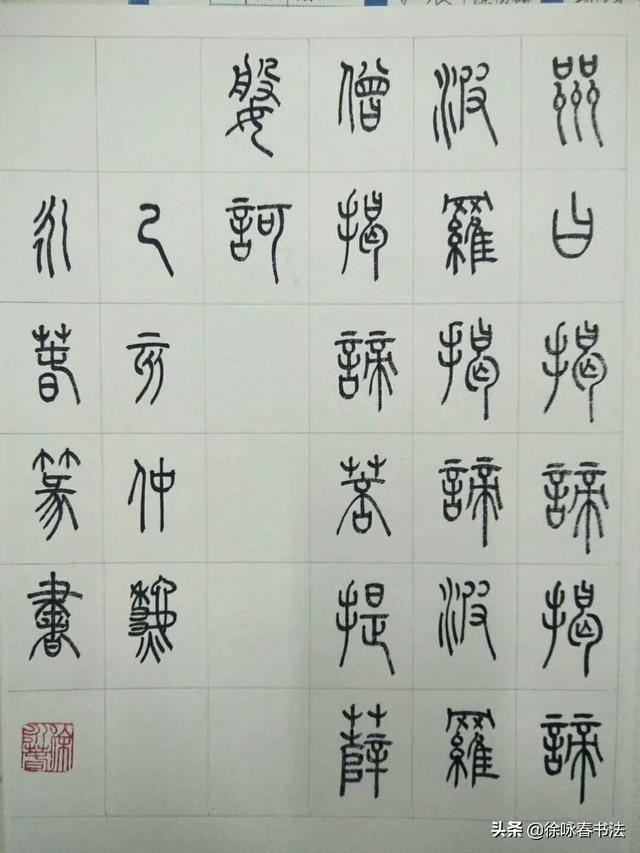 咒曰揭諦揭諦
波羅揭諦波羅
僧揭諦菩提薩
婆訶
己亥仲秋
永春篆書
头条 @徐咏春书法